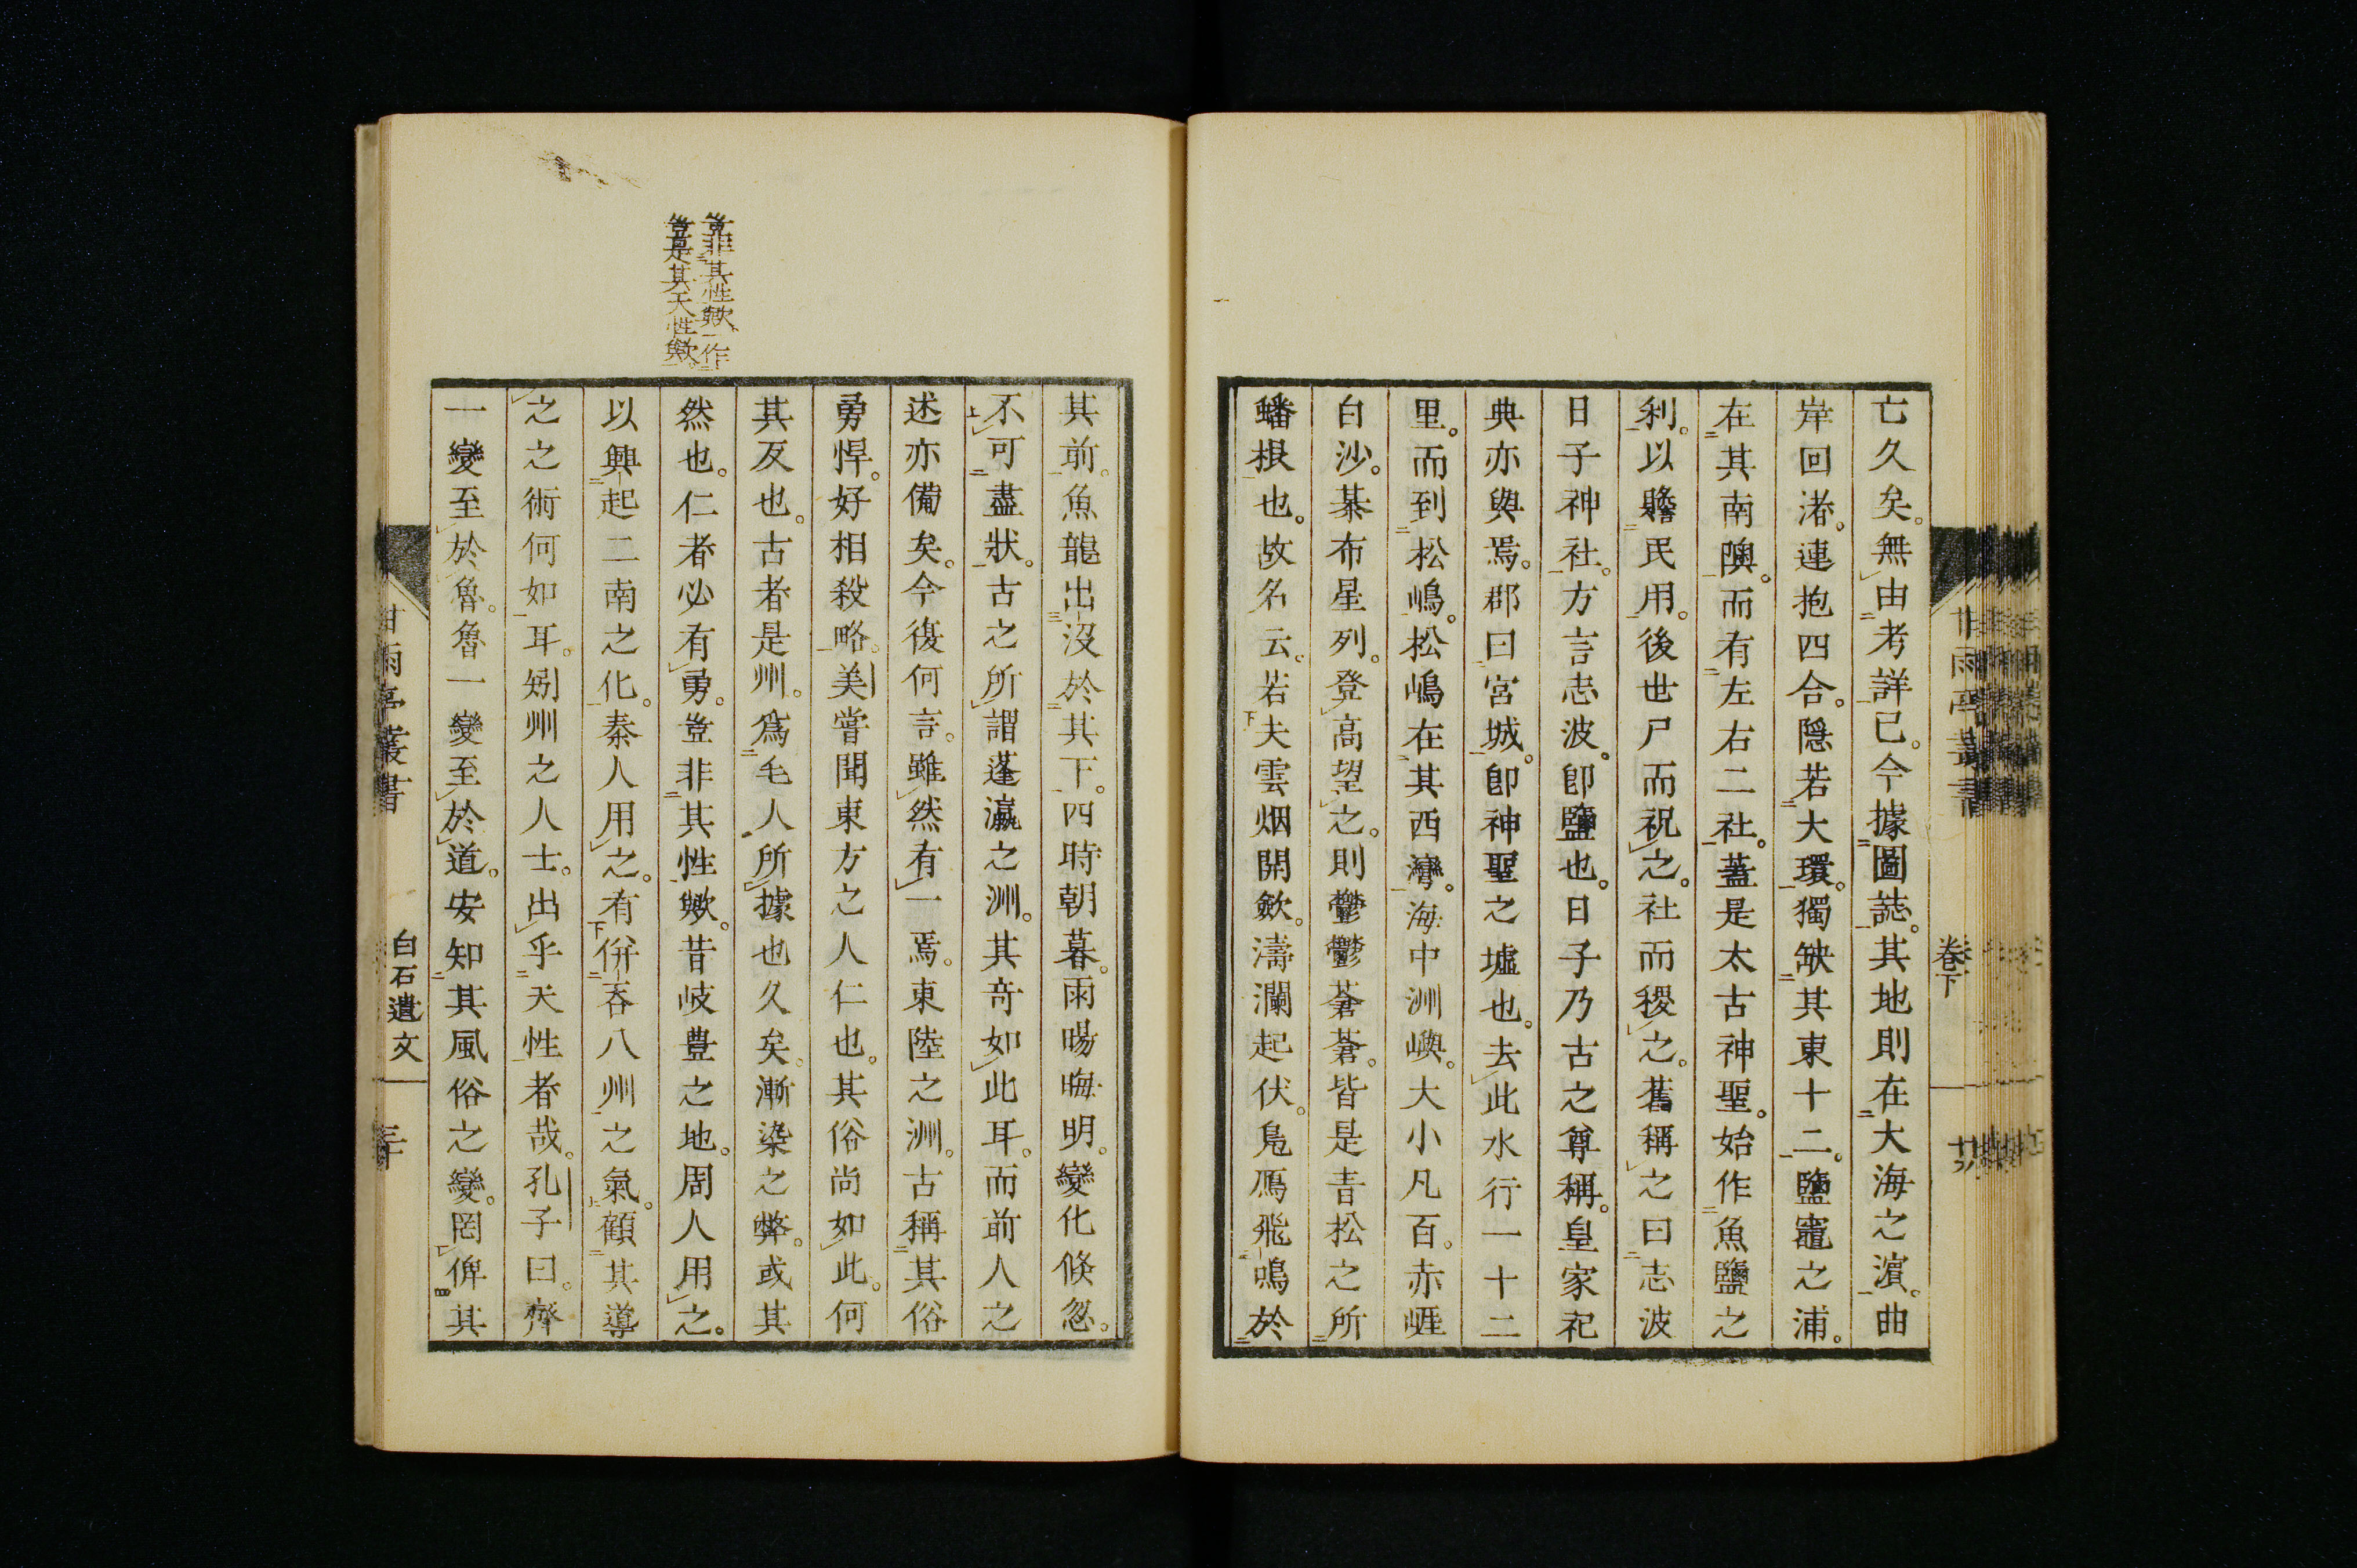 亡久矣。無由考詳已。今據圖誌。其地則在大海之濵。曲
岸回渚。連抱四合。隱若大環。獨缺其東十二。鹽竈之浦。
在其南隩。而有左右二社。蓋是太古神聖。始作魚鹽之
利。以贍民用。後世尸而祝之。社而稷之。舊稱之曰志波
日子神社。方言志波。卽鹽也。日子乃古之尊稱。皇家祀
典亦與焉。郡曰宮城。卽神聖之墟也。去此水行一十二
里。而到松嶋。松嶋在其西灣。海中洲嶼。大小凡百。赤崕
白沙。棊布星列。登高望之。則鬱鬱蒼蒼。皆是青松之所
蟠根也。故名云。若夫雲烟開歛。濤瀾起伏。鳬鴈飛鳴於
卷下
其前。魚龍出沒於其下。四時朝暮。雨暘晦明。變化倐忽。
不可盡狀。古之所謂蓬瀛之洲。其奇如此耳。而前人之
述亦備矣。今復何言。雖然有一焉。東陸之洲。古稱其俗
勇悍。好相殺略。美嘗聞東方之人仁也。其俗尚如此。何
其反也。古者是州。爲毛人所據也久矣。漸染之弊。或其
然也。仁者必有勇。豈非其性歟。昔岐豊之地。周人用之。
以興起二南之化。秦人用之。有併吞八州之氣。顧其導
之之術何如耳。矧州之人士。出乎天性者哉。孔子曰。齊
一變至於魯。魯一變至於道。安知其風俗之變。罔俾其
豈非其性歟。一作
豈是其天性歟。
甘雨亭叢書
白石遺文
三十